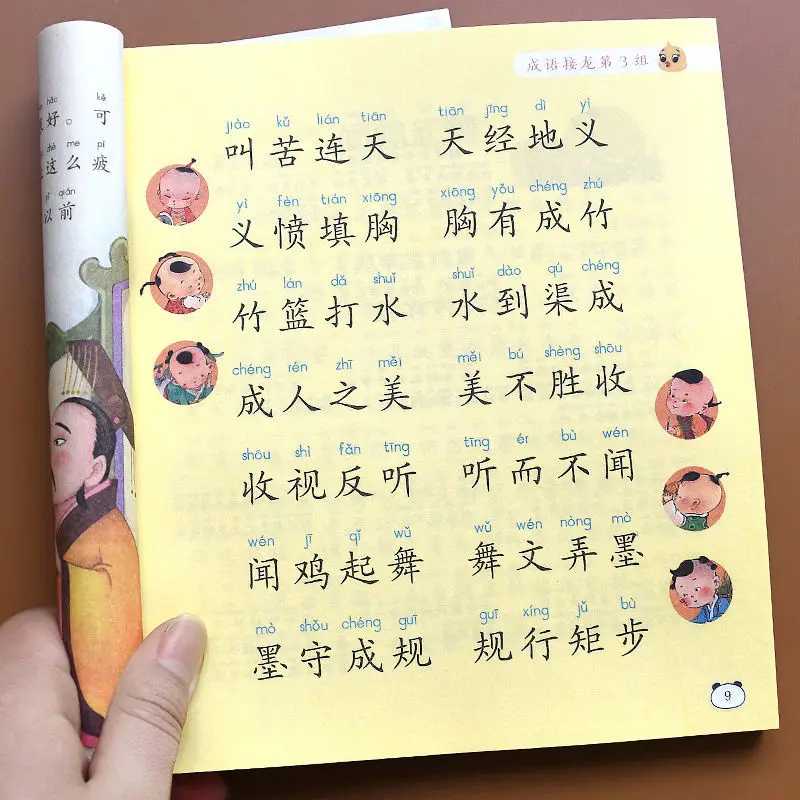 成语接龙第3组
jiào kǔ lián tiān tiān jīng dì yì
叫苦连天 天经地义
yì fèn tián xiōng xiōng yǒu chéng zhú
义愤填胸 胸有成竹
zhú lán dǎ shuǐ shuǐ dào qú chéng
竹篮打水 水到渠成
chéng rén zhī měi měi bú shèng shōu
成人之美 美不胜收
shōu shì fǎn tīng tīng ér bù wén
收视反听 听而不闻
wén jī qǐ wǔ wǔ wén nòng mò
闻鸡起舞 舞文弄墨
mò shǒu chéng guī guī xíng jǔ bù
墨守成规 规行矩步
9
hǎo kě
好。可
zhè me pí
这么疲
yǐ qián
以前